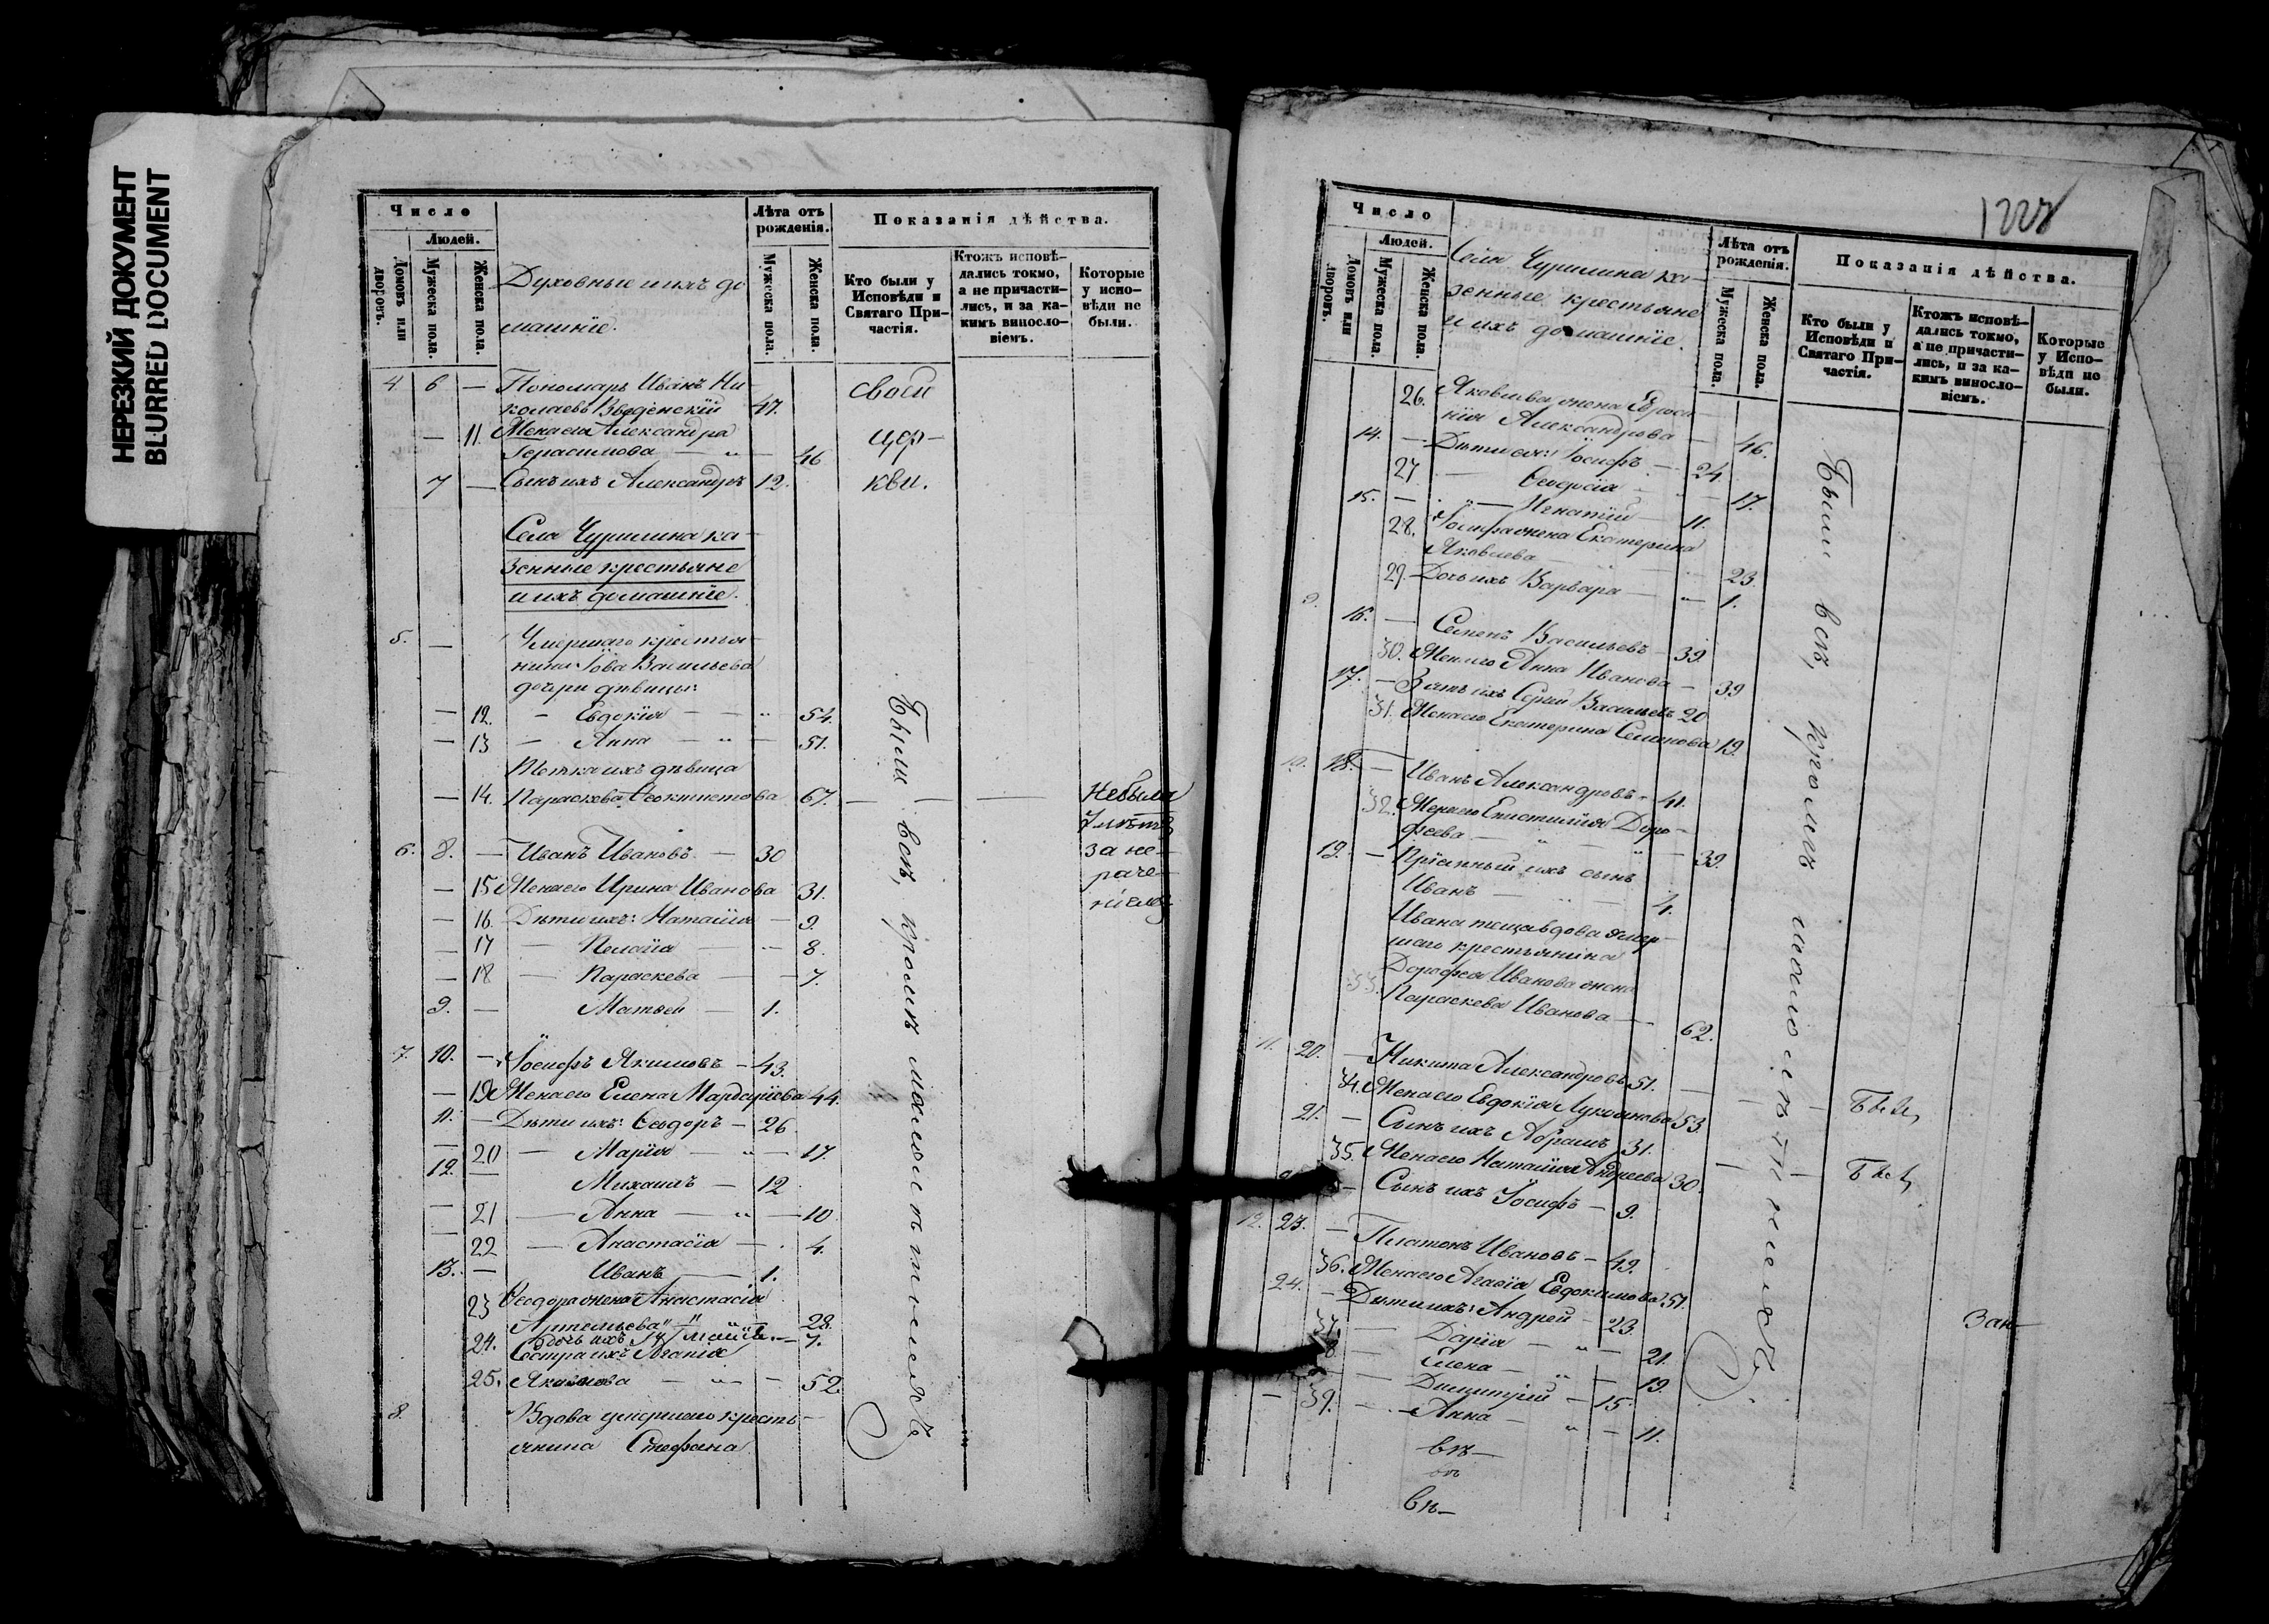 НЕРЕЗКИЙ ДОКУМЕНТ
BLURRED DOCUMENT
Число
Людей.
Домовъ или дворовъ.
Мужеска пола.
Женска пола.
Духовные и ихъ до
машніе.
Лѣта отъ рожденія.
Мужеска пола.
Женска пола.
Показанія дѣйства.
Кто были у Исповѣди и Святаго При-
частія.
Ктожъ исповѣ-
дались токмо,
а не причасти-
лись, и за ка-
кимъ винosло-
віемъ.
Которые
у испо-
вѣди не
были.
4 6 — Пономарь Иванъ Ни-
колаевъ Введенскій 47.
— 11. Жена его Александра
Герасимова — " — 46
7 — Сынъ ихъ Александръ 12.
своей
цер-
кви.
Села Чурилина ка-
зенные крестьяне
и ихъ домашніе.
5. — Умершаго крестья-
нина Іова Васильева
дочери дѣвицы:
— 12. — Евдокія — — " — 54.
— 13 — Анна — " — 51.
Тетка ихъ дѣвица
— 14. Параскева Ѳеоктистова 67. — — —
Небыла
7 лѣтъ
за не-
раче-
ніемъ
6. 8. — Иванъ Ивановъ — 30
— 15 Жена его Ирина Иванова 31.
— 16. Дѣти ихъ: Наталія — 9.
— 17 — Пелагія — " — 8.
— 18 — Параскева — — 7.
9. — Матвей — 1.
7. 10. — Іосифъ Якимовъ — 43.
— 19 Жена его Елена Мардаріева 44.
11. — Дѣти ихъ: Ѳеодоръ — 26
— 20 — Марія — " — 17.
12. — Михаилъ — 12
— 21 — Анна — " — 10
— 22 — Анастасія — . 4.
13. — Иванъ — 1.
23 Ѳеодора жена Анастасія
Артемьева " — " — 28.
24. дочь ихъ — 7.
Сестра ихъ Агапія
25. Якимова — " — 52.
8. Вдова умершаго кресть-
янина Стефана
Были всѣ, кромѣ малолѣтнихъ
1228
Число
Людей.
Домовъ или дворовъ.
Мужеска пола.
Женска пола.
Села Чурилина ка-
зенные крестьяне
и ихъ домашніе.
Лѣта отъ рожденія.
Мужеска пола.
Женска пола.
Показанія дѣйства.
Кто были у
Исповѣди и
Святаго При-
частія.
Ктожъ исповѣ-
дались токмо,
а не причасти-
лись, и за ка-
кимъ винosло-
віемъ.
Которые
у Испо-
вѣди не
были.
26. Яковлева жена Евфроси-
нія Александрова — 46.
14. — Дѣти ея: Іосифъ — 24.
27 — Ѳеодосія — — 17.
15. — " — Игнатій — 11.
28. Іосифа жена Екатерина
Яковлева — " — 23.
29. — Дочь ихъ Варвара — " — 1.
9. 16. — Семенъ Васильевъ — 39.
30. Жена его Анна Иванова — 39
17. — Зять ихъ Сергій Васильевъ 20
31. Жена его Екатерина Семенова 19.
10. 18. — Иванъ Александровъ — 41.
32. Жена его Епистимія Доро-
феева — " — " — 39.
19. — Пріемный ихъ сынъ
Иванъ — " — 4.
Ивана теща вдова умер-
шаго крестьянина
Дорофея Иванова жена
33. Параскева Иванова — 62.
11. 20. — Никита Александровъ 51. —
34. Жена его Евдокія Лукьянова 53.
21. — Сынъ ихъ Абрамъ 31.
35. Жена его Наталія Андреева 30.
— Сынъ ихъ Іосифъ — 9.
12. 23. — Платонъ Ивановъ — 49.
36. Жена его Агафія Евдокимова 51.
24. — Дѣти ихъ: Андрей — 23.
37. — Дарія — " — 21.
8. — Елена — " — 19.
— Димитрій — 15.
— 39. — Анна — " — 11.
Были всѣ, кромѣ малолѣтнихъ.
Зан-